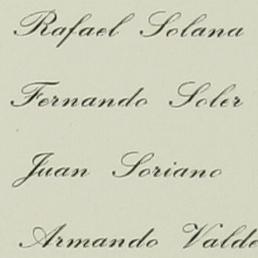 Rafael Solana
Fernando Soler
Juan Soriano
Armando